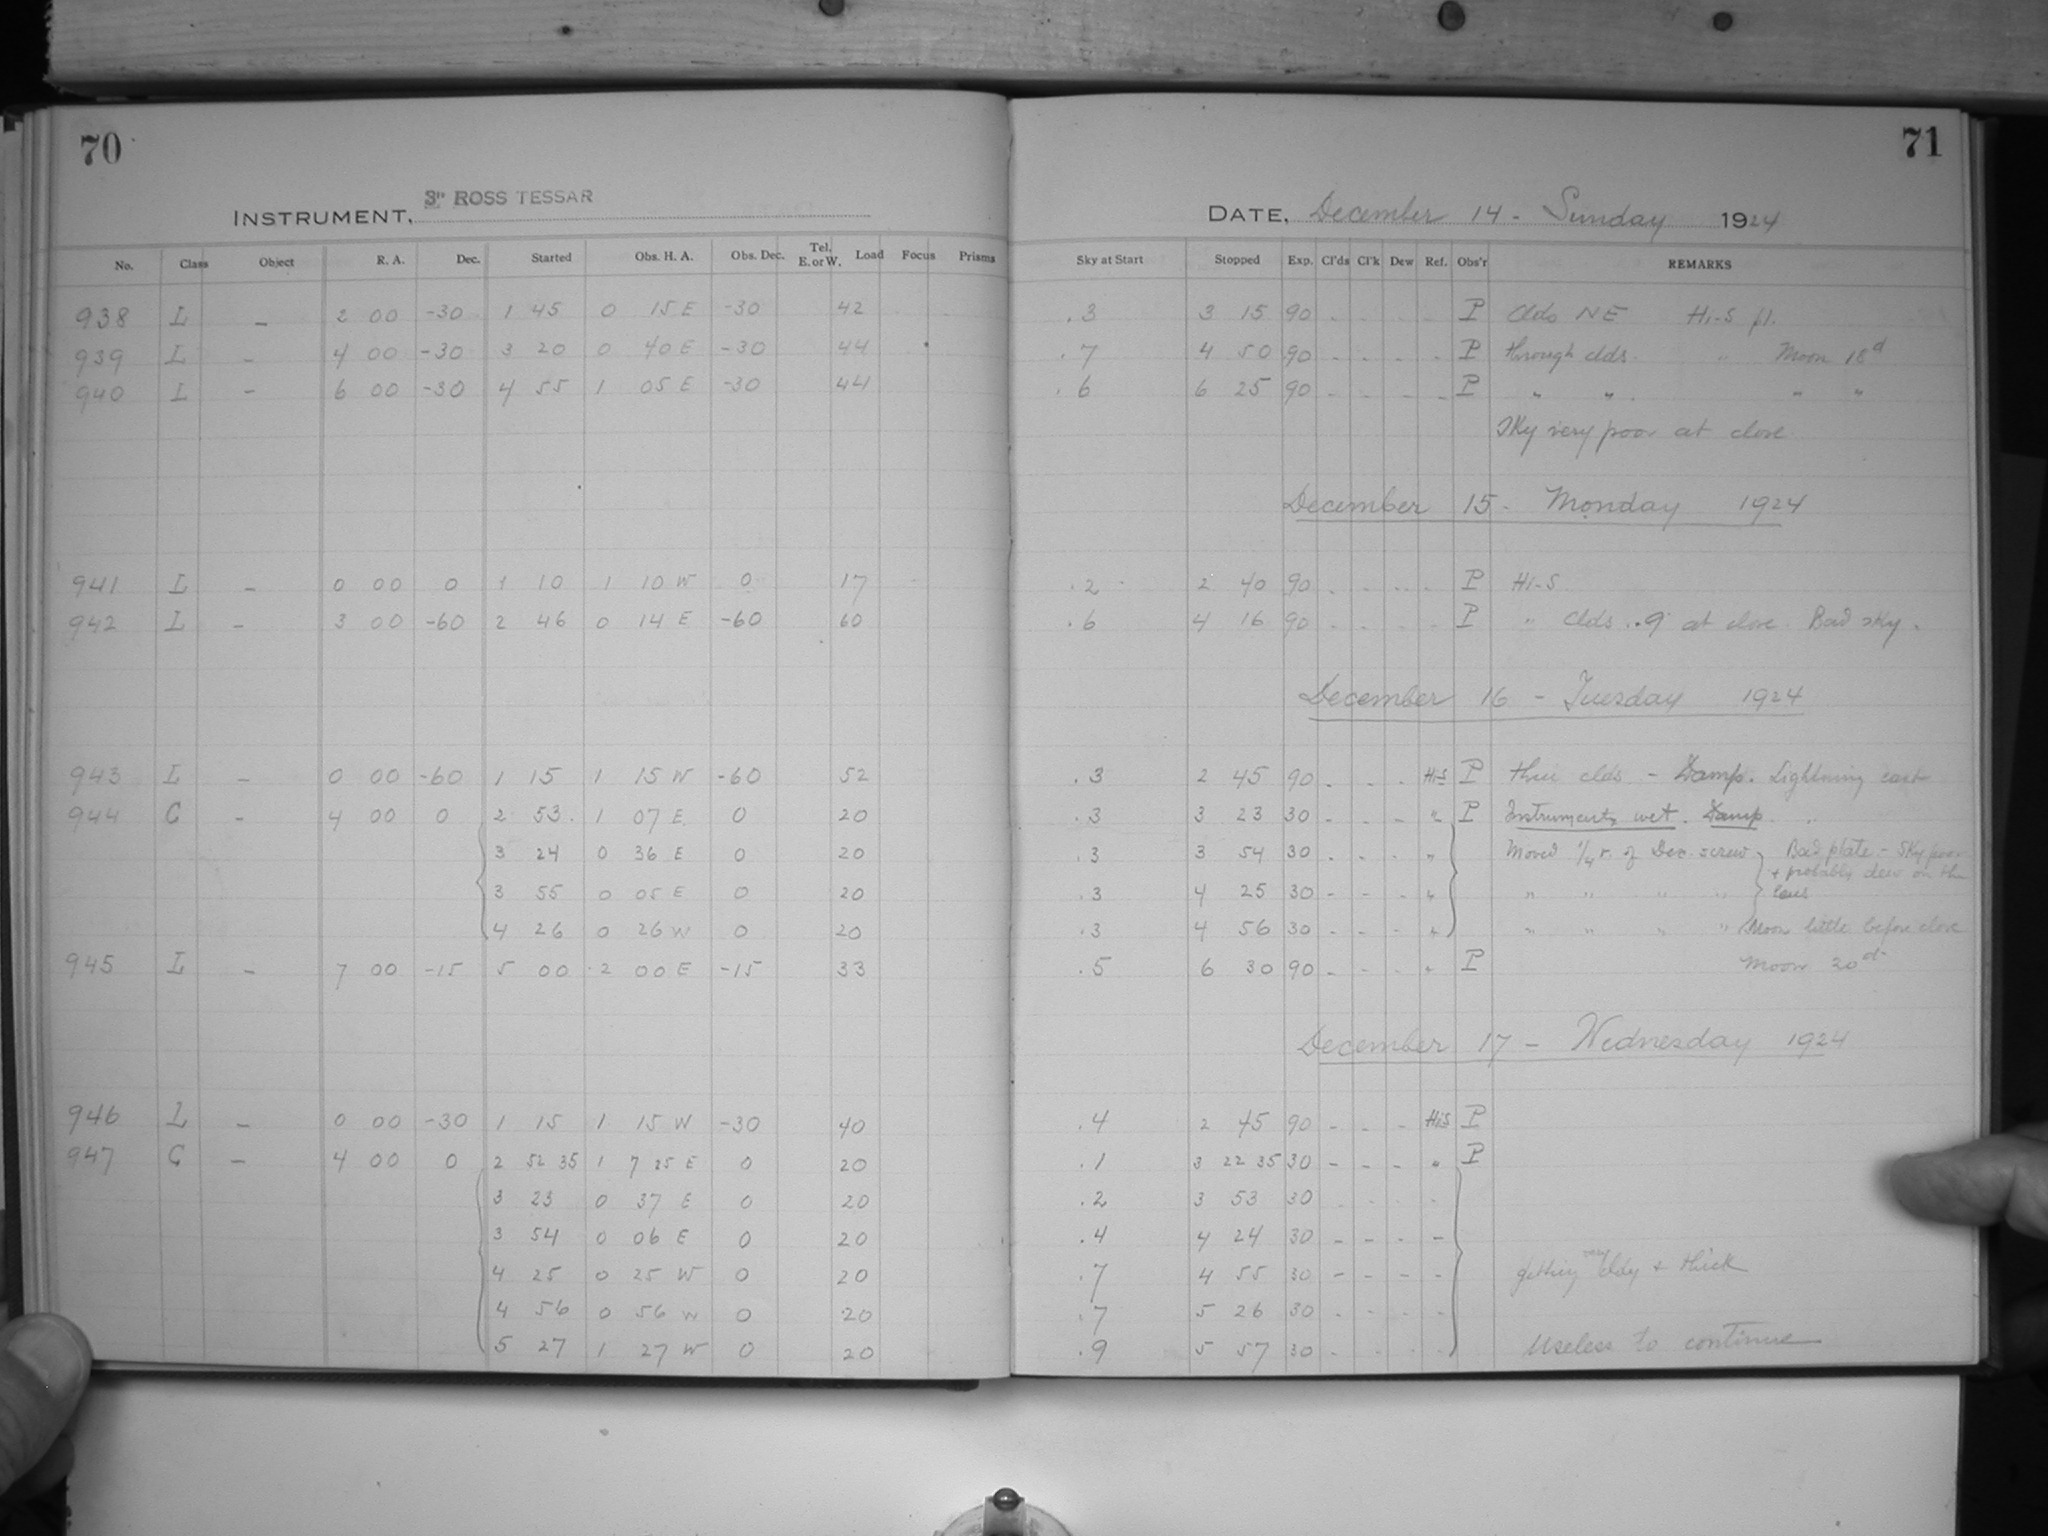 70
INSTRUMENT, 3" ROSS TESSAR
No. Class Object R. A. Dec. Started Obs. H. A. Obs. Dec. Tel. E. or W. Load Focus Prisms
938 L - 2 00 -30 1 45 0 15 E -30 42
939 L - 4 00 -30 3 20 0 40 E -30 44
940 L - 6 00 -30 4 55 1 05 E -30 44
941 L - 0 00 0 1 10 1 10 W 0 17
942 L - 3 00 -60 2 46 0 14 E -60 60
943 L - 0 00 -60 1 15 1 15 W -60 52
944 C - 4 00 0 2 53 1 07 E 0 20
3 24 0 36 E 0 20
3 55 0 05 E 0 20
4 26 0 26 W 0 20
945 L - 7 00 -15 5 00 2 00 E -15 33
946 L - 0 00 -30 1 15 1 15 W -30 40
947 C - 4 00 0 2 52 35 1 7 25 E 0 20
3 23 0 37 E 0 20
3 54 0 06 E 0 20
4 25 0 25 W 0 20
4 56 0 56 W 0 20
5 27 1 27 W 0 20
71
DATE, December 14 - Sunday 1924
Sky at Start Stopped Exp. Cl'ds Cl'k Dew Ref. Obs'r REMARKS
.3 3 15 90 - - - - P Clds NE Hi-S pl.
.7 4 50 90 - - - - P through clds. " Moon 18d
.6 6 25 90 - - - - P " " " "
Sky very poor at close
December 15 - Monday 1924
.2 2 40 90 - - - - P Hi-S
.6 4 16 90 - - - - P " Clds .9 at close. Bad sky.
December 16 - Tuesday 1924
.3 2 45 90 - - - Hi-S P clds - Damp. Lightning east
.3 3 23 30 - - - " P Instruments wet. Damp "
.3 3 54 30 - - - " Moved 1/4 r. of Dec. screw } Bad plate - Sky poor
+ probably dew on the
.3 4 25 30 - - - " " " " " lens
.3 4 56 30 - - - " " " " " Moon little before close
.5 6 30 90 - - - " P Moon 20d
December 17 - Wednesday 1924
.4 2 45 90 - - - Hi-S P
.1 3 22 35 30 - - - " P
.2 3 53 30 - - - -
.4 4 24 30 - - - -
.7 4 55 30 - - - - getting very cldy + thick
.7 5 26 30 - - - -
.9 5 57 30 - - - - Useless to continue